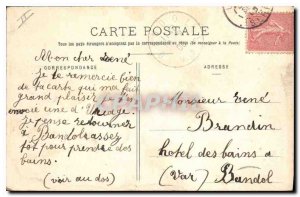 CARTE POSTALE
Tous les pays étrangers n'acceptent pas la correspondance au recto (Se renseigner à la Poste)
CORRESPONDANCE
ADRESSE
Mon cher René
je te remercie bien
de ta carte qui me fait
grand plaisir
moi une d'
je pense retourner
à Bandol assez
tôt pour prendre des
bains.
(voir au dos)
Monsieur René
Brandin
hotel des bains à
(Var) Bandol